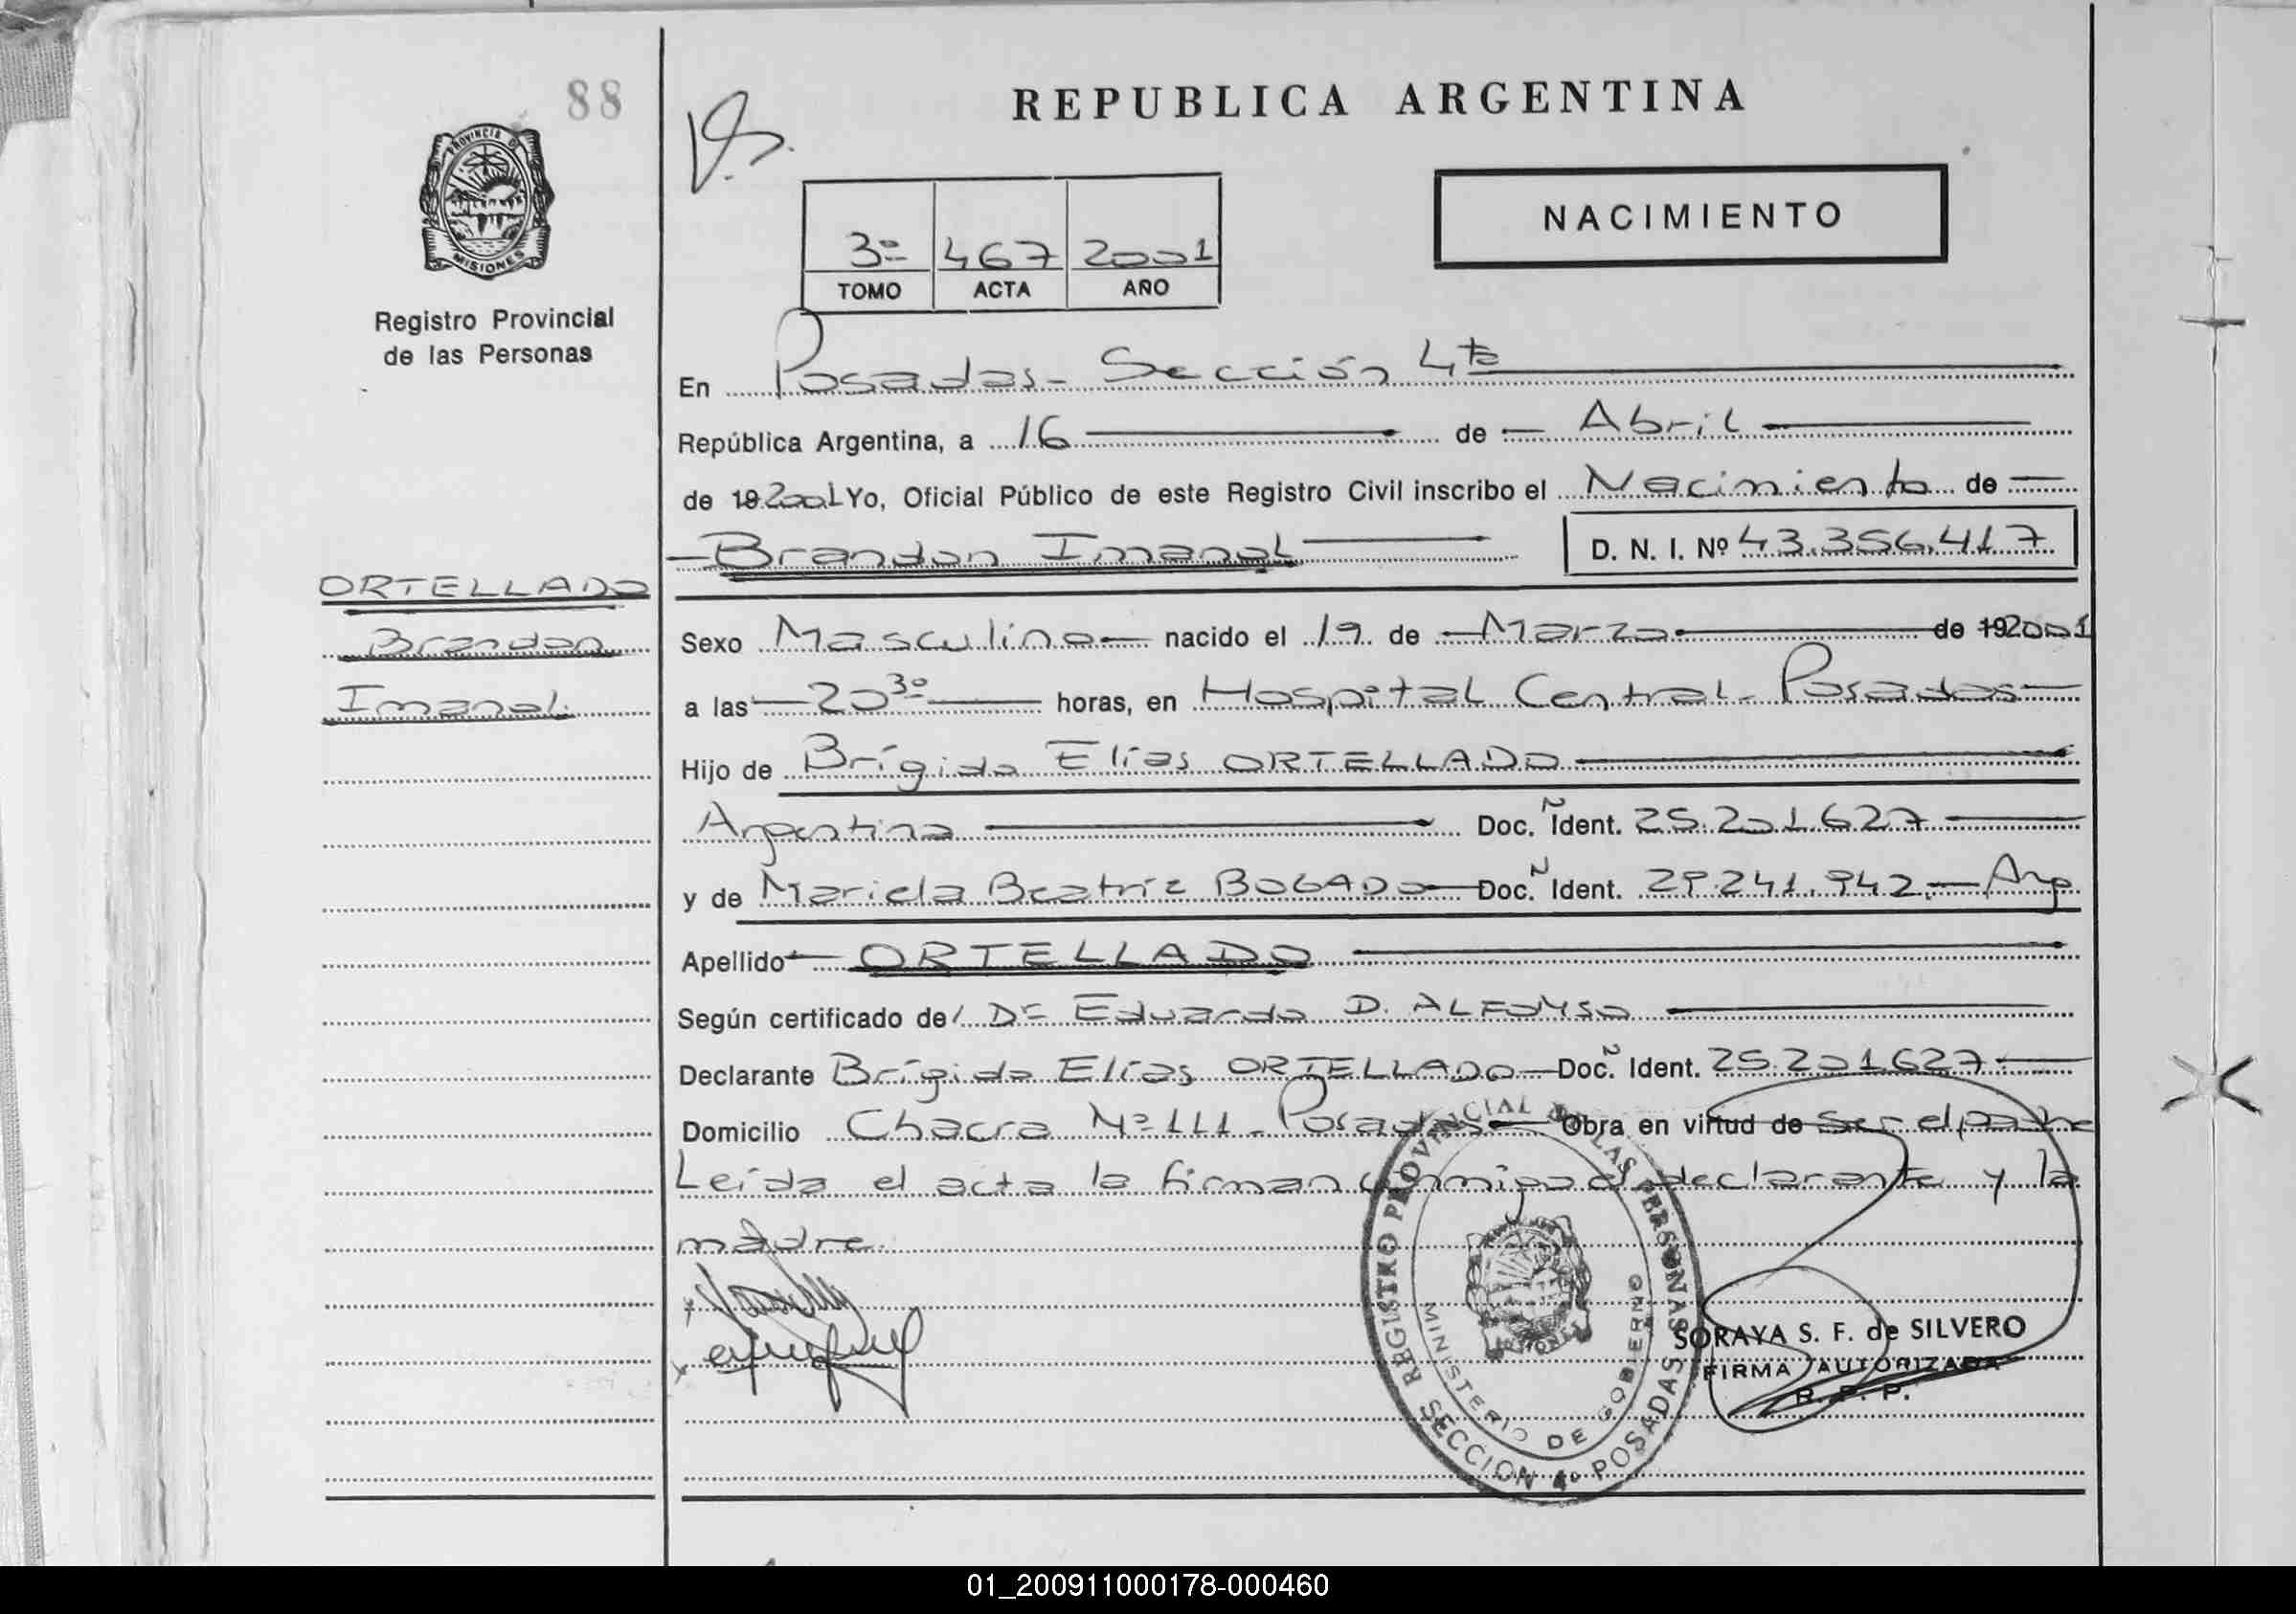 88
REPUBLICA ARGENTINA
PROVINCIA DE MISIONES
NACIMIENTO
3º 467 2001
TOMO ACTA AÑO
Registro Provincial
de las Personas
En Posadas - Sección 4ta
República Argentina, a 16 de Abril
de 19 2001 Yo, Oficial Público de este Registro Civil inscribo el Nacimiento de
Brandon Imanol D. N. I. Nº 43.356.417
ORTELLADO
Brandon
Imanol.
Sexo Masculino nacido el 19 de Marzo de 19 2001
a las 20 30 horas, en Hospital Central - Posadas
Hijo de Brígido Elías ORTELLADO
Argentino Doc. Ñ Ident. 25.201.627
y de Mariela Beatríz BOGADO Doc. N Ident. 29.241.942. - Arg.
Apellido ORTELLADO
Según certificado del Dr Eduardo D. ALFONSO
Declarante Brígido Elías ORTELLADO Doc. N Ident. 25.201.627
Domicilio Chacra Nº 111 - Posadas Obra en virtud de ser el padre
Leída el acta la firman conmigo el declarante y la
madre.
REGISTRO PROVINCIAL DE LAS PERSONAS
MINISTERIO DE GOBIERNO
SECCION 4º POSADAS
SORAYA S. F. de SILVERO
FIRMA AUTORIZADA
R. P. P.
01_200911000178-000460